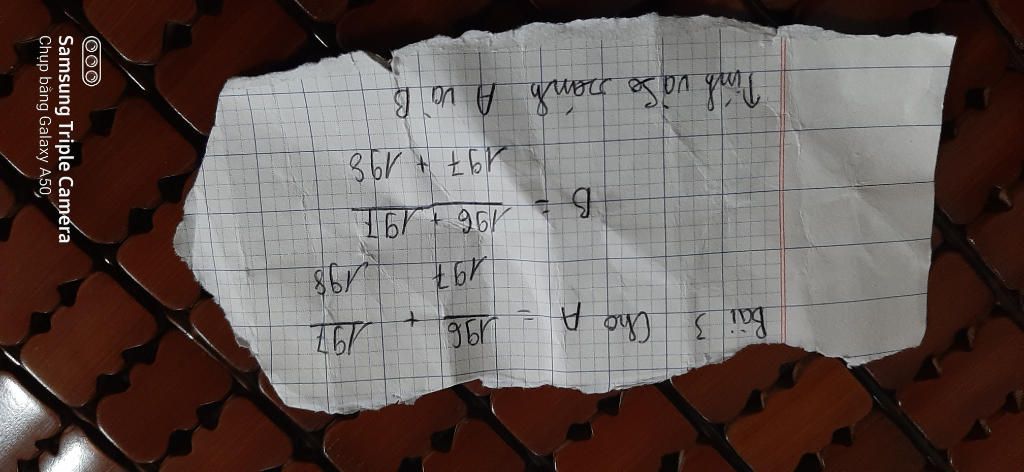 Bài 3 Cho A = 196/197 + 197/198
B = 196 + 197 / 197 + 198
Tính và So sánh A và B
Samsung Triple Camera
Chụp bằng Galaxy A50